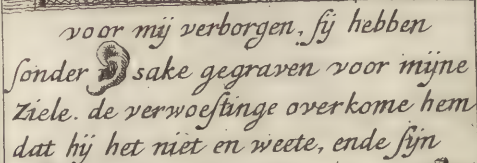 voor mij verborgen, ſij hebben
ſonder sake gegraven voor mijne
Ziele. de verwoeſtinge overkome hem
dat hij het niet en weete, ende ſijn